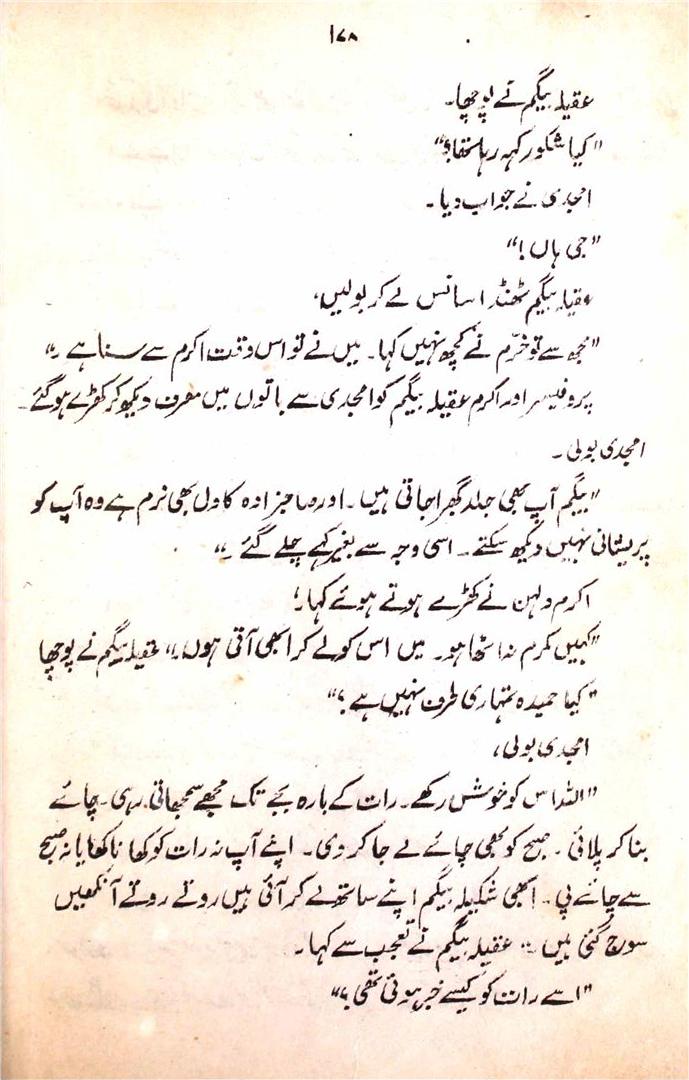 ۱۷۸
عقیلہ بیگم نے پوچھا۔
"کیا شکور کہہ رہا تھا؟"
امجدی نے جواب دیا۔
"جی ہاں!"
عقیلہ بیگم ٹھنڈا سانس لے کر بولیں،
"مجھ سے تو خرّم نے کچھ نہیں کہا۔ میں نے تو اس وقت اکرم سے سنا ہے۔"
پروفیسر اور اکرم عقیلہ بیگم کو امجدی سے باتوں میں مصرف دیکھ کر کھڑے ہو گئے۔
امجدی بولی۔
"بیگم آپ بھی جلد گھبرا جاتی ہیں۔ اور صاحبزادہ کا دل بھی نرم ہے وہ آپ کو
پریشانی نہیں دیکھ سکتے۔ اسی وجہ سے بغیر کہے چلے گئے۔"
اکرم دلہن نے کھڑے ہوتے ہوئے کہا۔
"کہیں مکرم نہ اٹھا ہو۔ میں اس کو لے کر ابھی آتی ہوں۔" عقیلہ بیگم نے پوچھا
"کیا حمیدہ تمہاری طرف نہیں ہے؟"
امجدی بولی،
"اللہ اس کو خوش رکھے۔ رات کے بارہ بجے تک مجھے سمجھاتی رہی۔ چائے
بنا کر پلائی۔ صبح کو بھی چائے لے جا کر دی۔ اپنے آپ نہ رات کو کھانا کھایا نہ صبح
سے چائے پی۔ ابھی شکیلہ بیگم اپنے ساتھ لے کر آئی ہیں روتے روتے آنکھیں
سوج گئی ہیں۔" عقیلہ بیگم نے تعجب سے کہا۔
"اسے رات کو کیسے خبر ہوئی تھی؟"